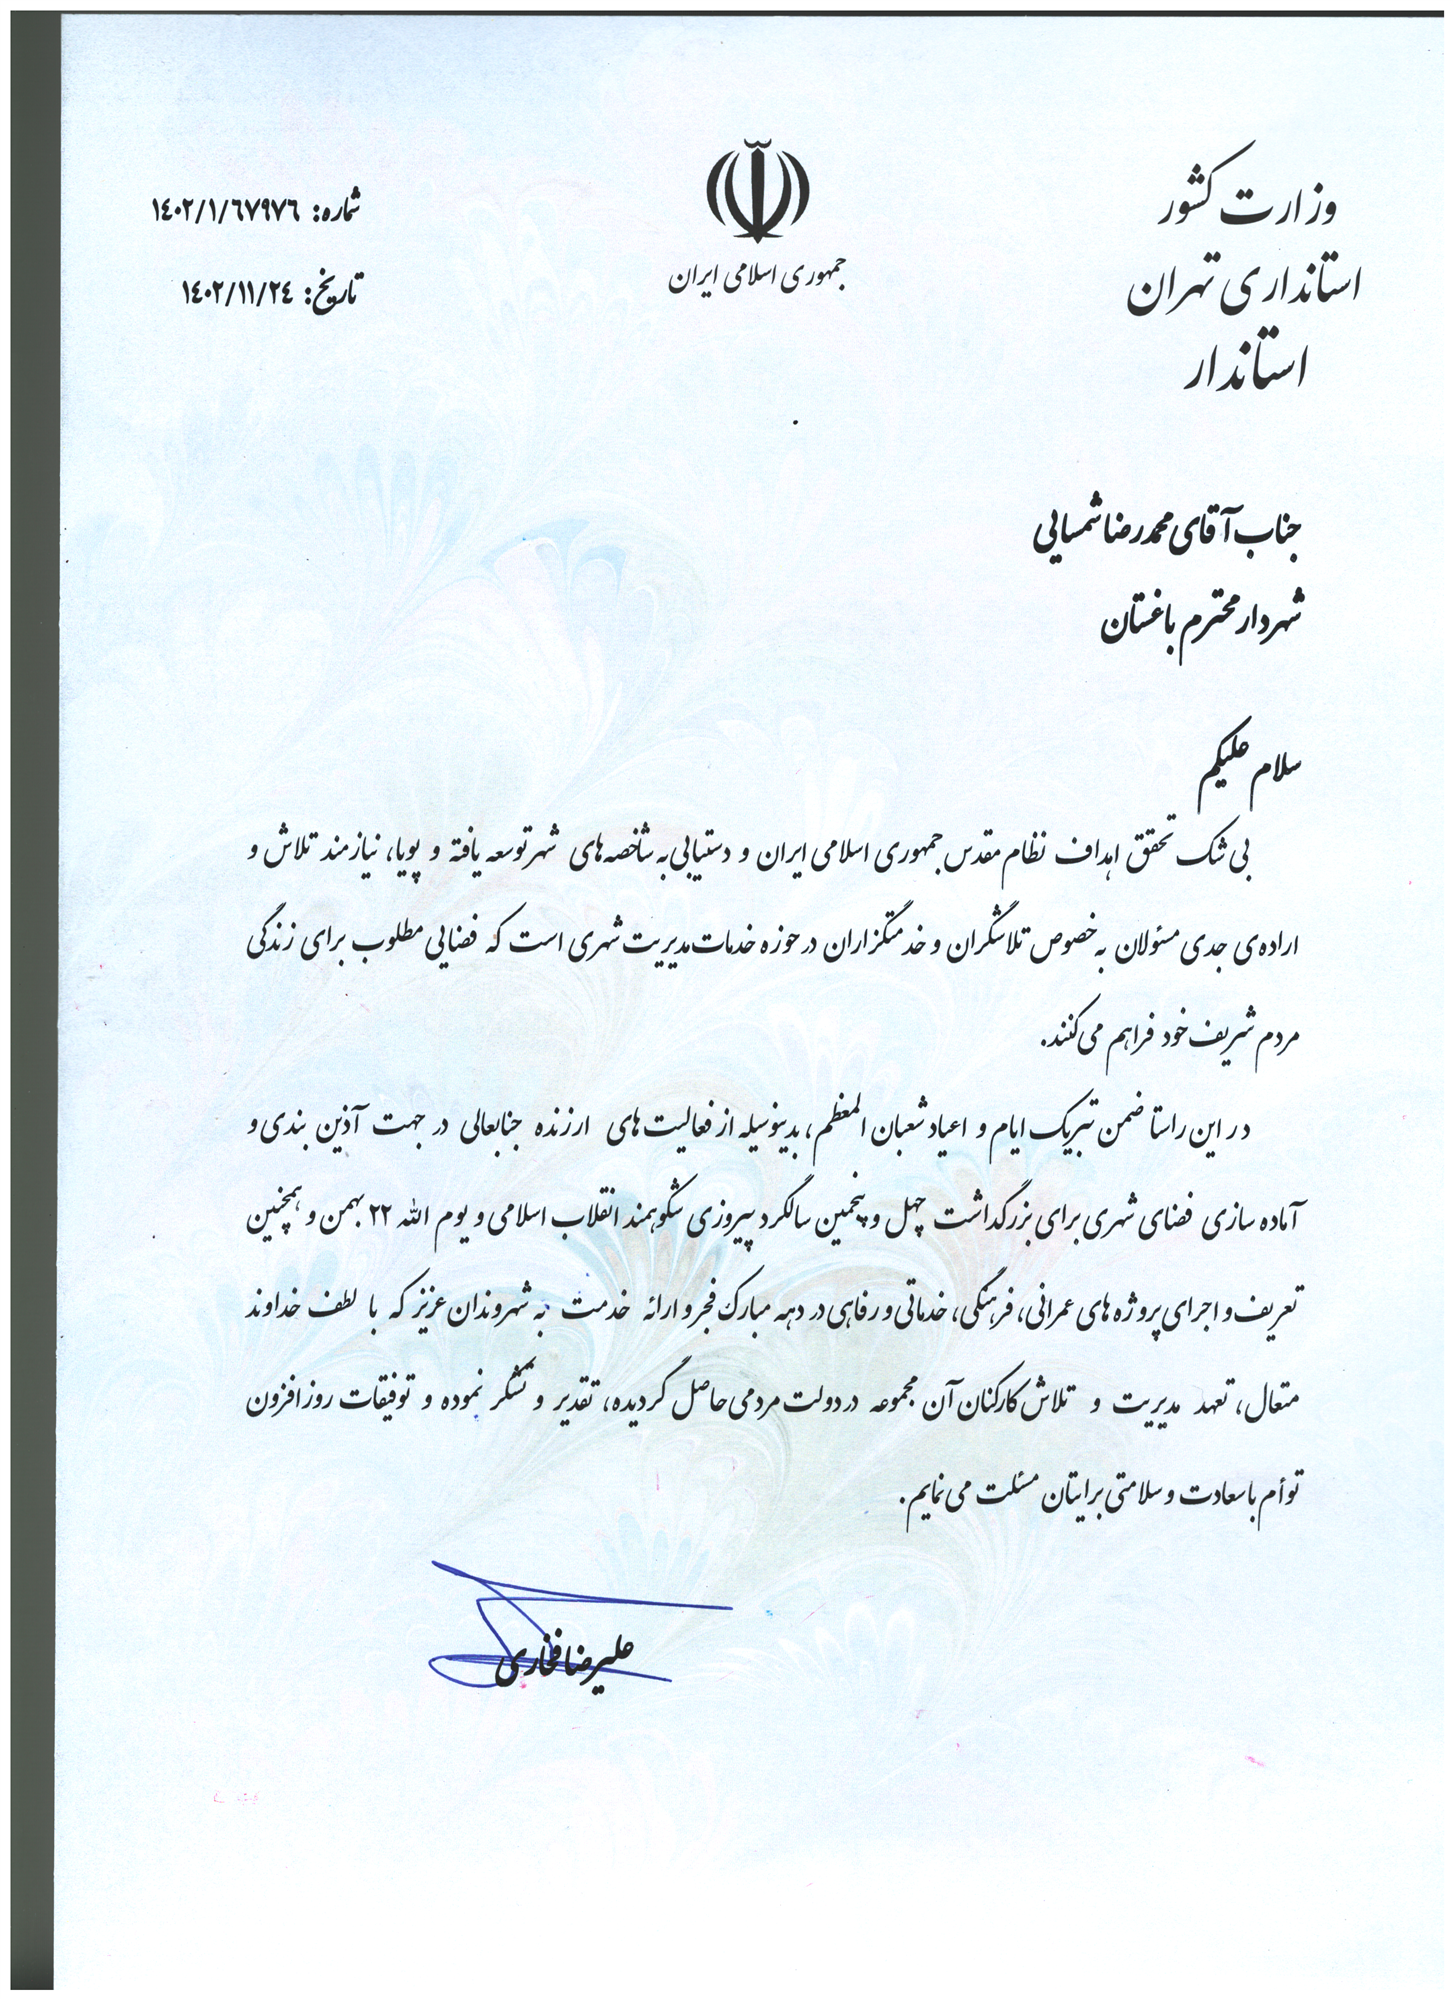 وزارت کشور
استانداری تهران
استاندار
جمهوری اسلامی ایران
شماره: ۱٤۰۲/۱/٦۷۹۷٦
تاریخ: ۱٤۰۲/۱۱/۲٤
جناب آقای محمدرضا شمسایی
شهردار محترم باغستان
سلام علیکم
بی شک تحقق اهداف نظام مقدس جمهوری اسلامی ایران و دستیابی به شاخصه‌های شهر توسعه یافته و پویا، نیازمند تلاش و
اراده‌ی جدی مسئولان به خصوص تلاشگران و خدمتگزاران در حوزه خدمات مدیریت شهری است که فضایی مطلوب برای زندگی
مردم شریف خود فراهم می‌کنند.
در این راستا ضمن تبریک ایام و اعیاد شعبان المعظم، بدینوسیله از فعالیت‌های ارزنده جنابعالی در جهت آذین بندی و
آماده سازی فضای شهری برای بزرگداشت چهل و پنجمین سالگرد پیروزی شکوهمند انقلاب اسلامی و یوم الله ۲۲ بهمن و همچنین
تعریف و اجرای پروژه های عمرانی، فرهنگی، خدماتی و رفاهی در دهه مبارک فجر و ارائه خدمت به شهروندان عزیز که با لطف خداوند
متعال، تعهد مدیریت و تلاش کارکنان آن مجموعه در دولت مردمی حاصل گردیده، تقدیر و تشکر نموده و توفیقات روزافزون
توأم با سعادت و سلامتی برایتان مسئلت می‌نمایم.
علیرضا فخاری